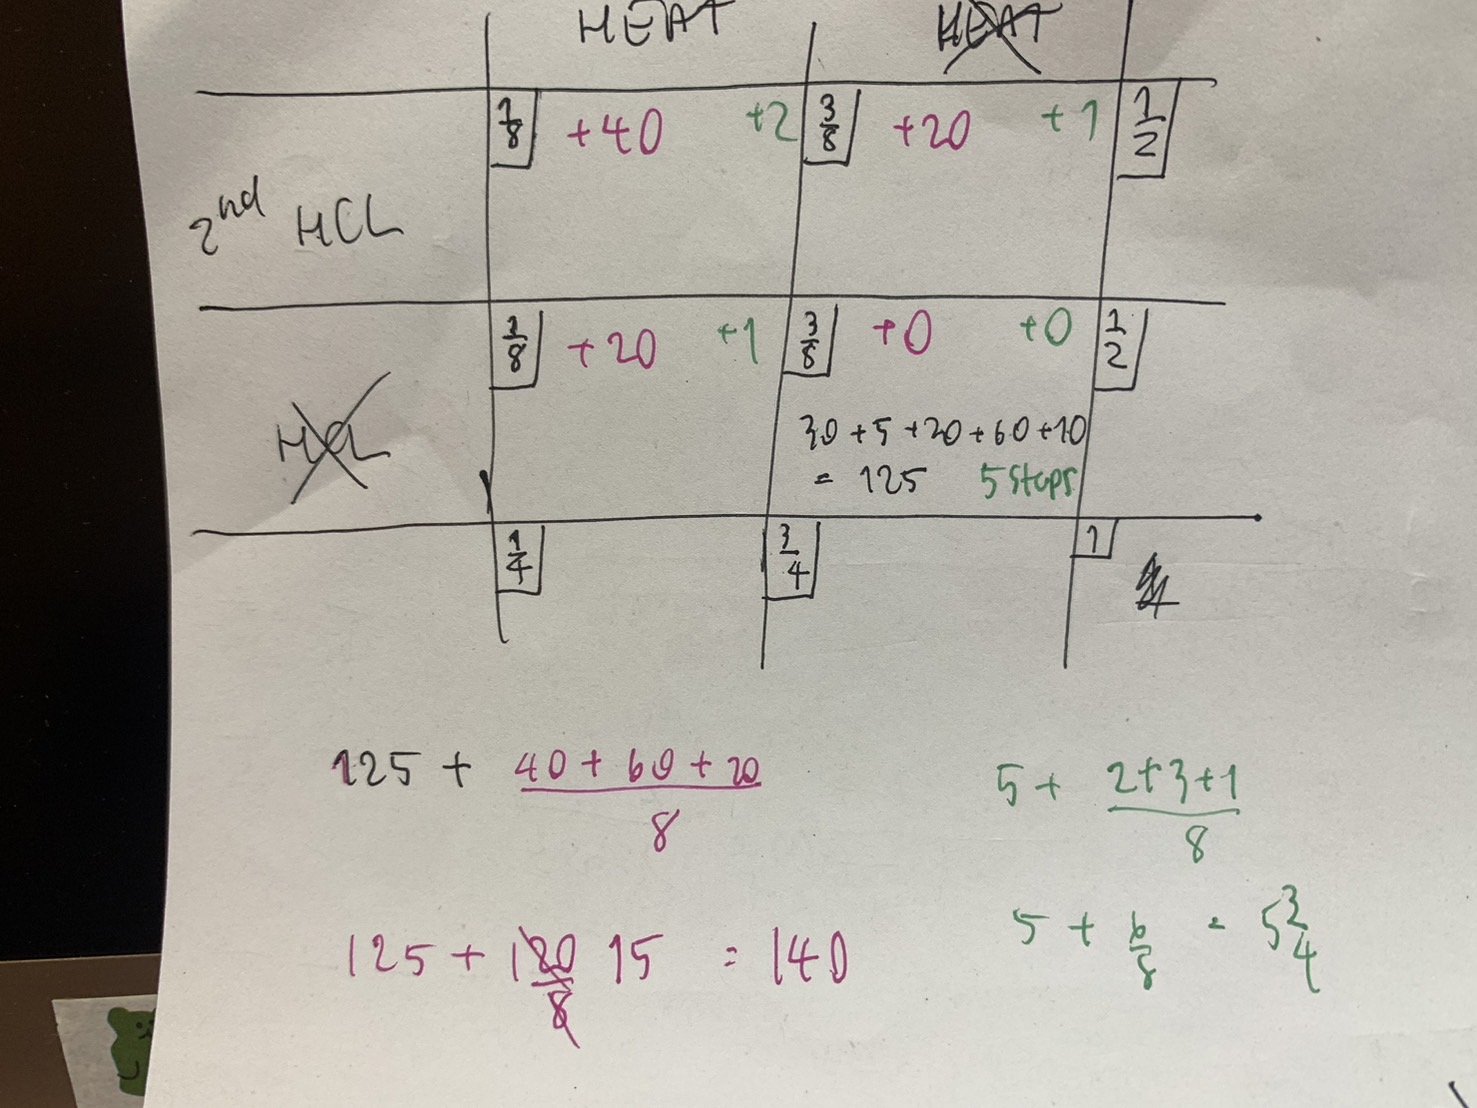 HEAT HEAT
1/8 +40 +2 3/8 +20 +1 1/2
2nd HCL
1/8 +20 +1 3/8 +0 +0 1/2
HCL
30+5+20+60+10
= 125 5 steps
1/4 3/4 1
125 + (40+60+20)/8 5 + (2+3+1)/8
125 + 120/8 15 = 140 5 + 6/8 = 5 3/4